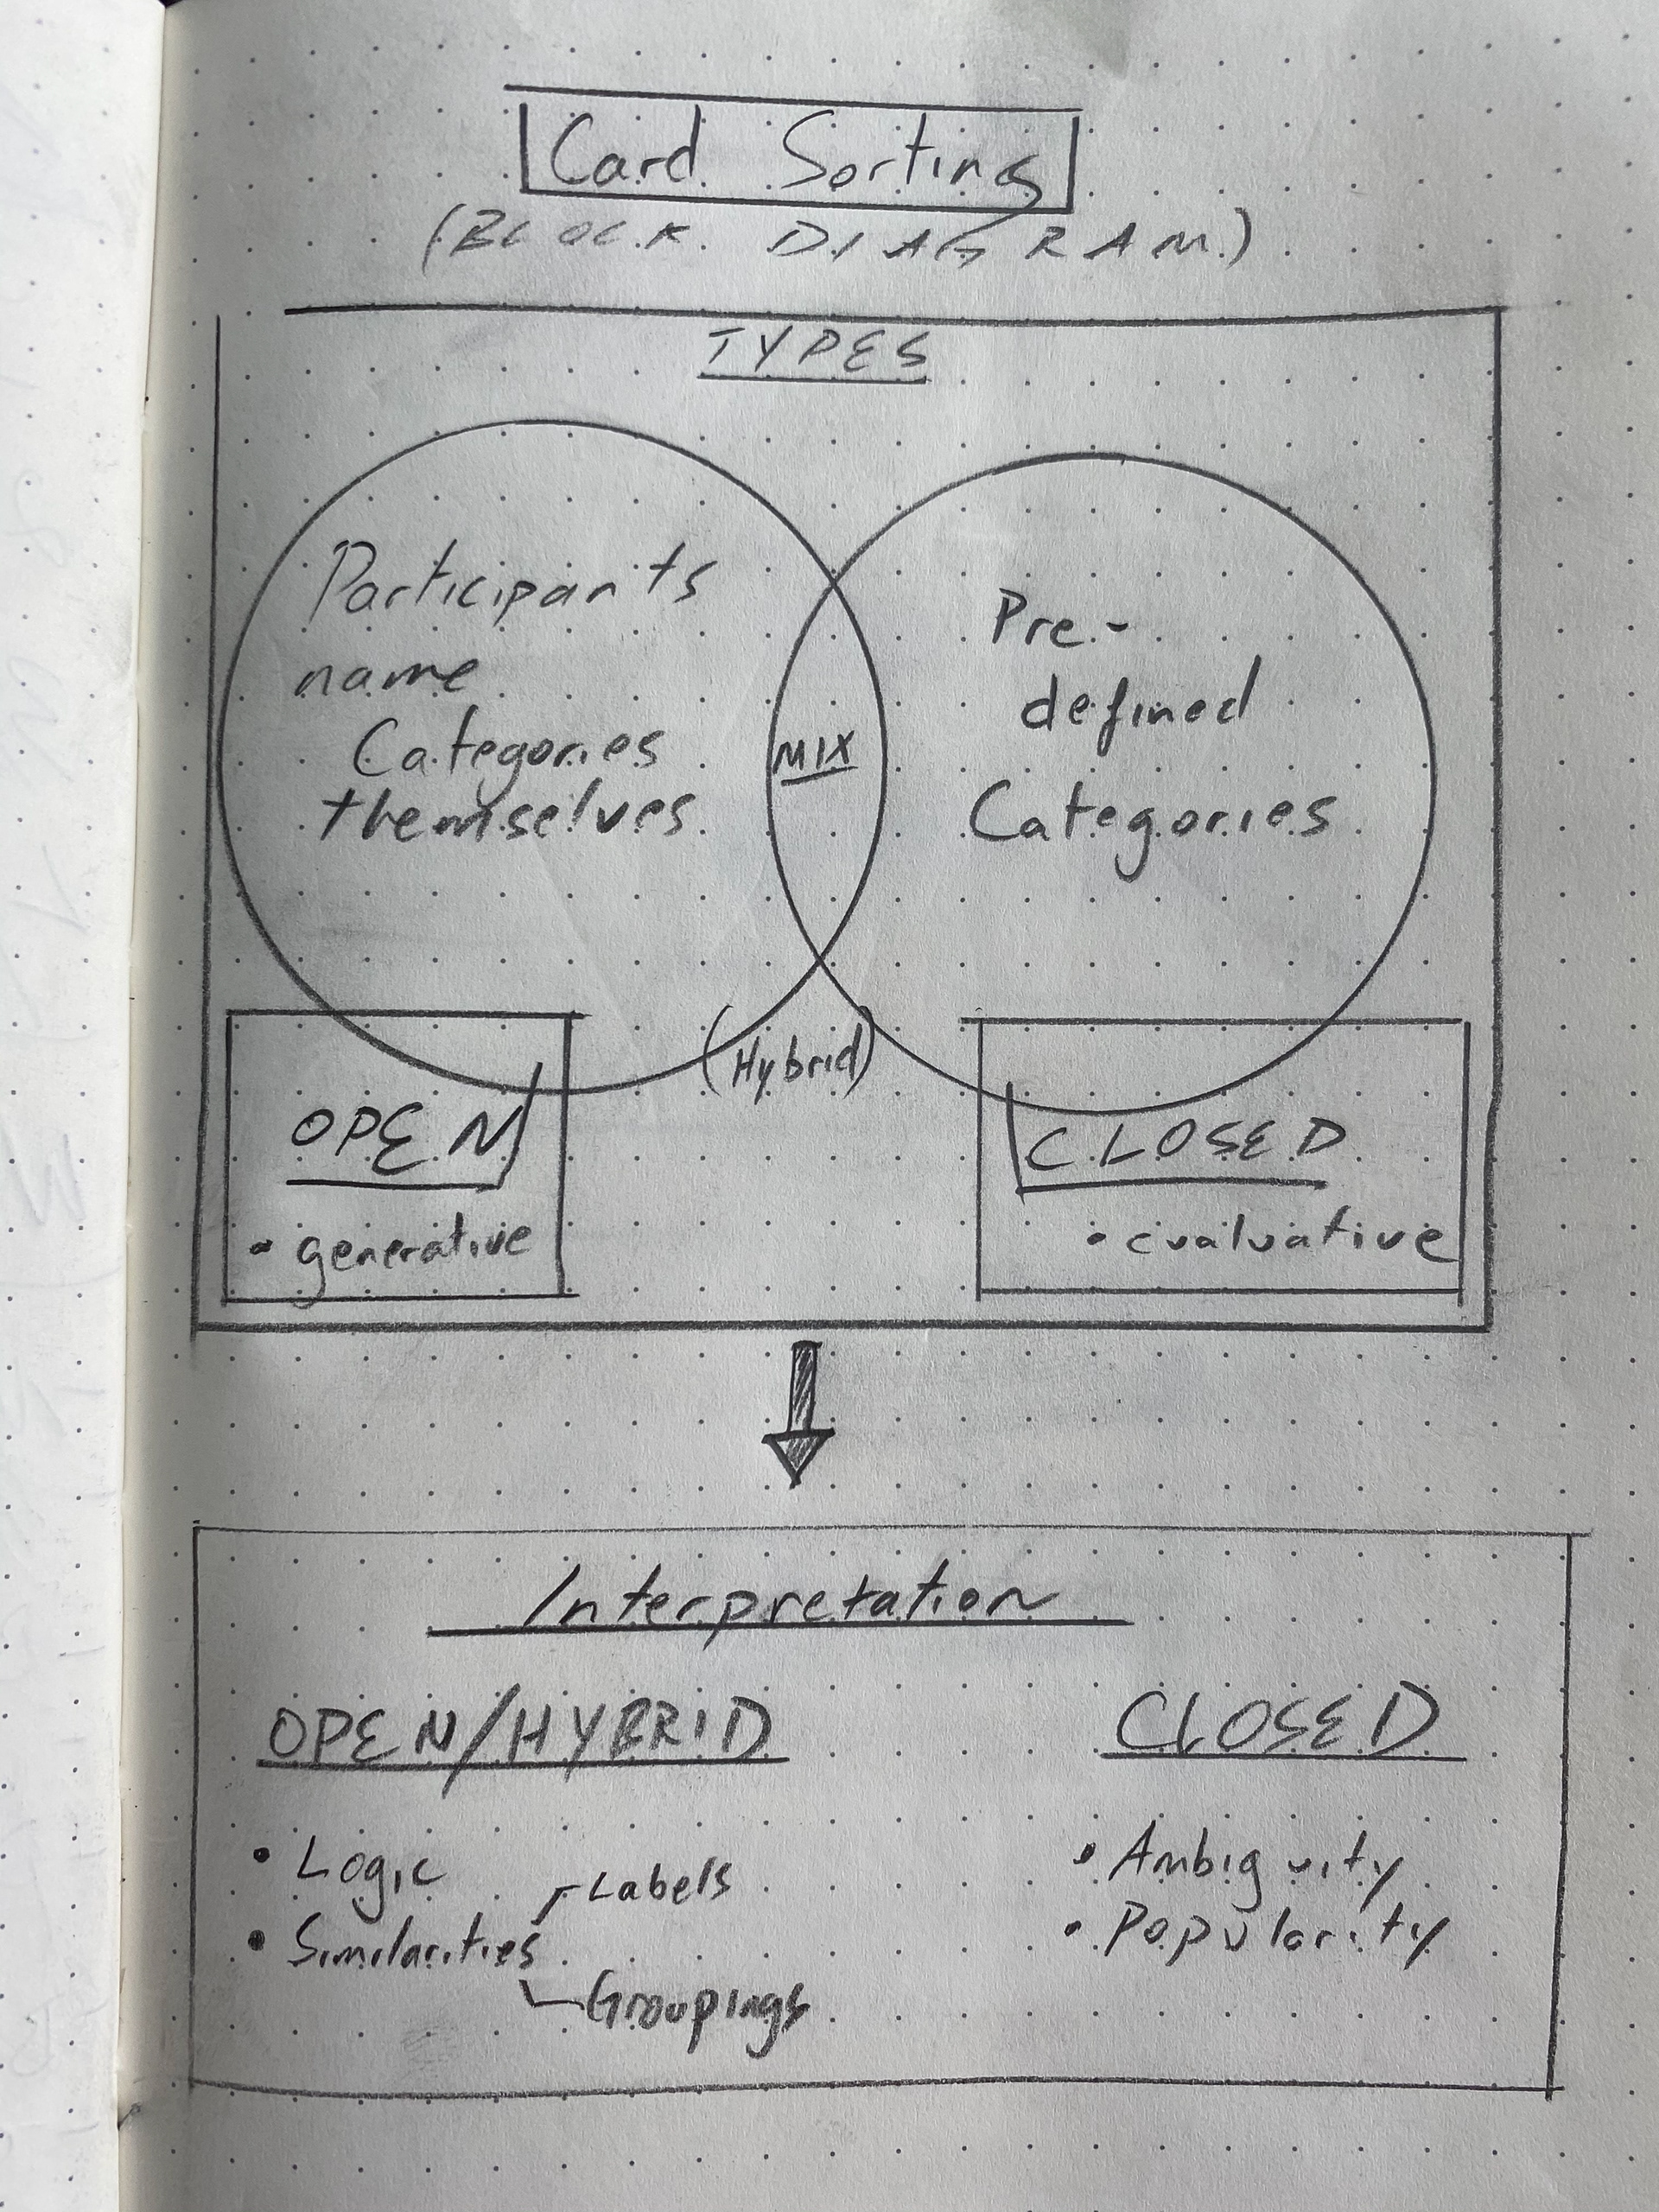 Card Sorting
(BLOCK DIAGRAM)
TYPES
Participants
name
Categories
themselves
MIX
Pre-
defined
Categories
(Hybrid)
OPEN
• generative
CLOSED
• evaluative
Interpretation
OPEN/HYBRID
• Logic
• Similarities
Labels
Groupings
CLOSED
• Ambiguity
• Popularity